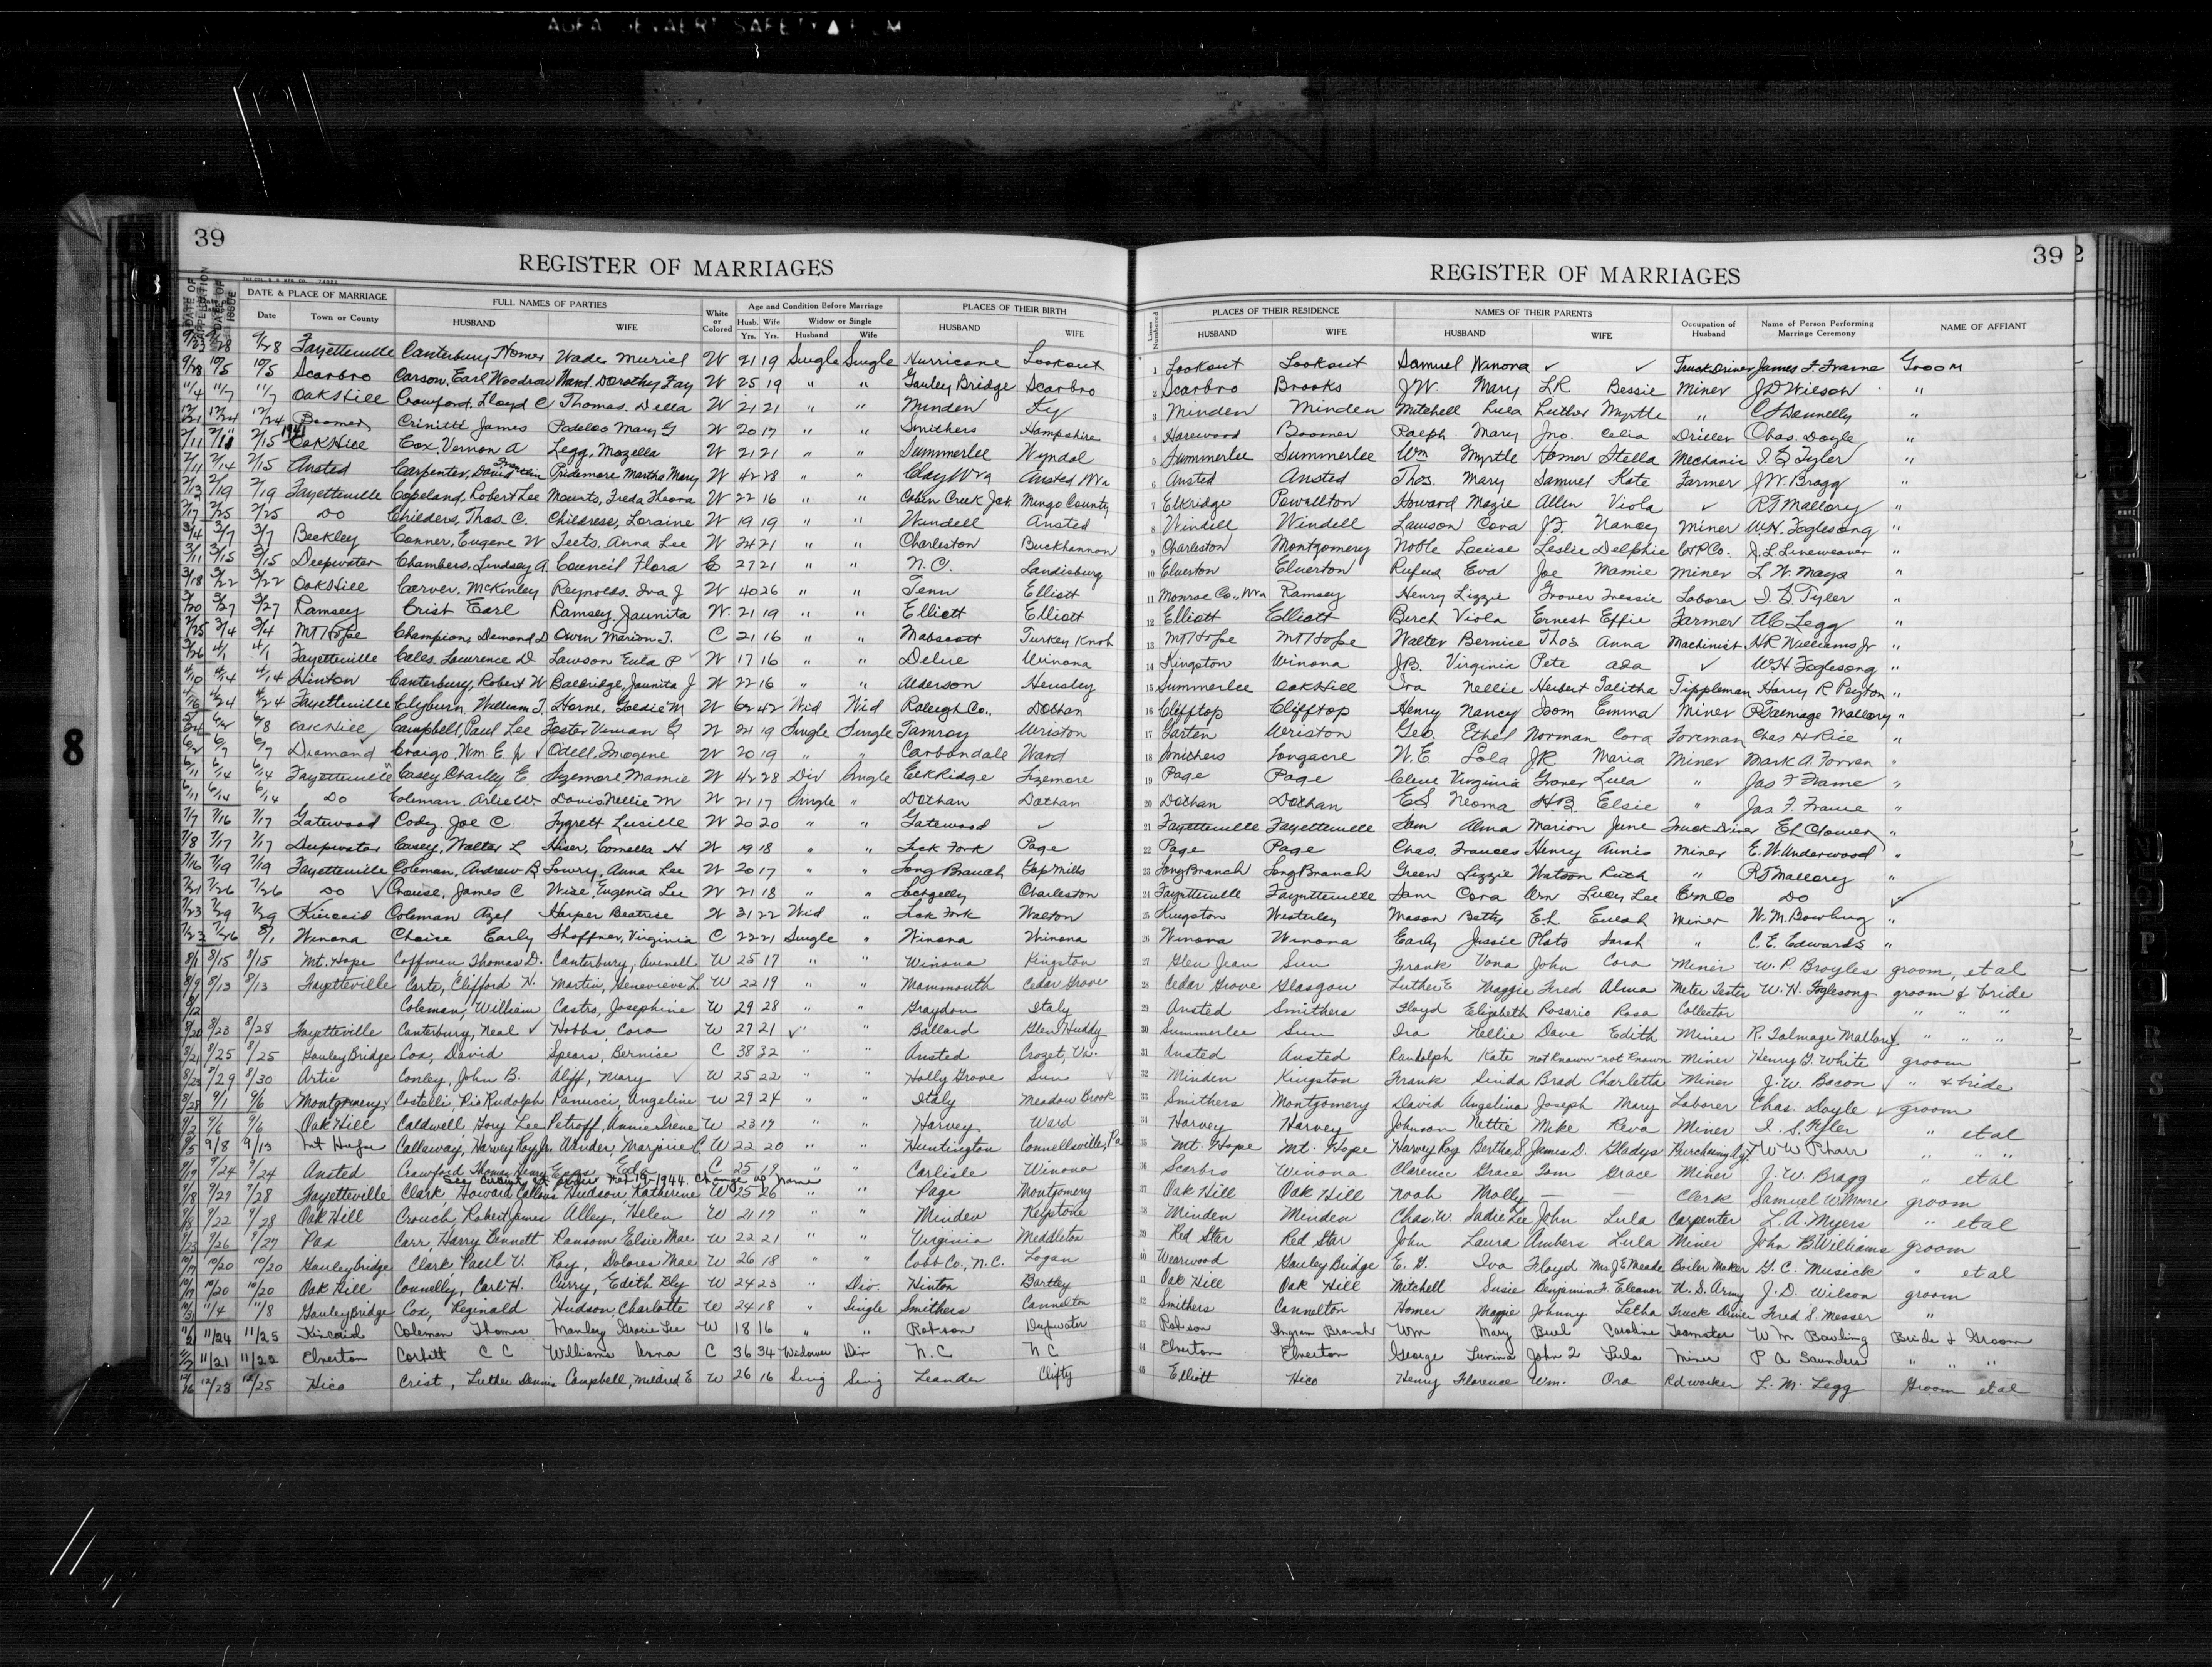 39
REGISTER OF MARRIAGES
DATE OF APPLICATION
DATE OF ISSUE
DATE & PLACE OF MARRIAGE
FULL NAMES OF PARTIES
White or Colored
Age and Condition Before Marriage
PLACES OF THEIR BIRTH
Date Town or County HUSBAND WIFE Husb. Yrs. Wife Yrs. Widow or Single Husband Wife HUSBAND WIFE
9/28 Fayetteville Canterbury Homer Wade Muriel W 21 19 Single Single Hurricane Lookout
9/28 10/5 10/5 Scarbro Carson, Earl Woodrow Ward, Dorothy Fay W 25 19 " " Gauley Bridge Scarbro
11/4 11/7 11/7 Oak Hill Crawford, Lloyd C Thomas, Della W 21 21 " " Minden Ky
12/21 12/24 12/24 Boomer Crinitti James Mary G W 20 17 " " Smithers Hampshire
1941
2/11 2/15 Oak Hill Cox, Vernon A Legg, Mozella W 21 21 " " Summerlee Wyndal
2/11 2/14 2/15 Ansted Carpenter, David Pridemore, Martha Mary W 42 28 " " Clay W Va Ansted, W Va
2/13 2/19 2/19 Fayetteville Copeland, Robert Lee Mounts, Freda W 22 16 " " Cabin Creek Jct. Mingo County
2/17 2/25 2/25 Do Childers, Thos. C. Childress, Loraine W 19 19 " " Windell Ansted
3/4 3/7 3/7 Beckley Conner, Eugene W Teets, Anna Lee W 24 21 " " Charleston Buckhannon
3/11 3/15 3/15 Deepwater Chambers, Lindsey A. Council Flora C 27 21 " " N.C. Landisburg
3/18 3/22 3/22 Oak Hill Carver, McKinley Reynolds, Iva J W 40 26 " " Tenn Elliott
3/20 3/27 3/27 Ramsey Crist Earl Ramsey, Jaunita W 21 19 " " Elliott Elliott
2/25 3/4 3/4 Mt Hope Champion, Demond D Owen Marion T. C 21 16 " " Mabscott Turkey Knob
3/26 4/1 4/1 Fayetteville Cales, Lawrence D Lawson Eula P W 17 16 " " Delue Winona
4/10 4/14 4/14 Hinton Canterbury, Robert W Balbridge, Jaunita J W 22 16 " " Alderson Hensley
4/16 4/24 4/24 Fayetteville Clyburn, William T. Horne, Goldie M W 62 42 Wid Wid Raleigh Co., Dothan
6/8 Oak Hill Campbell, Paul Lee Foster Vivian G W 24 19 Single Single Tamroy Wriston
6/2 6/7 6/7 Diamond Craigo, Wm. E. Jr Odell, Imogene W 20 19 " " Carbondale Ward
6/11 6/14 6/14 Fayetteville Casey Charley E. Sizemore Mamie W 42 28 Div Single Elk Ridge Sizemore
6/11 6/14 6/14 Do Coleman, Arlie W Davis Nellie M W 21 17 Single " Dothan Dothan
7/7 7/16 7/17 Gatewood Cody, Joe C. Fygrett Lucille W 20 20 " " Gatewood ✓
7/8 7/17 7/17 Deepwater Casey, Walter L Hiser, Cornella H W 19 18 " " Lick Fork Page
7/16 7/19 7/19 Fayetteville Coleman, Andrew B Lowry, Anna Lee W 20 17 " " Long Branch Gap Mills
7/21 7/26 7/26 Do Crouse, James C Wise, Eugenia Lee W 21 18 " " Lochgelly Charleston
7/23 7/29 7/29 Kincaid Coleman Azel Harper Beatrice W 31 22 Wid " Lick Fork Walton
7/23 7/26 8/1 Winona Choise Early Shoffner, Virginia C 22 21 Single " Winona Winona
8/1 8/15 8/15 Mt. Hope Coffman, Thomas D. Canterbury, Avenell W 25 17 " " Winona Kingston
8/9 8/13 8/13 Fayetteville Carte, Clifford H. Martin, Genevieve L W 22 19 " " Mammouth Cedar Grove
8/12 Coleman, William Castro, Josephine W 29 28 " " Graydon Italy
8/20 8/23 8/28 Fayetteville Canterbury, Neal Hobbs, Cora W 27 21 " " Ballard Glen Huddy
8/21 8/25 8/25 Gauley Bridge Cox, David Spears, Bernice C 38 32 " " Ansted Crozet, Va.
8/23 8/29 8/30 Artie Conley, John B. Aliff, Mary W 25 22 " " Holly Grove Sun
8/28 9/1 9/6 Montgomery Costelli, Pio Rudolph Panucci, Angeline W 29 24 " " Italy Meadow Brook
9/2 9/6 9/6 Oak Hill Caldwell, Gory Lee Petroff, Annie Irene W 23 17 " " Harvey Ward
9/5 9/8 9/13 Mt Hope Callaway, Harvey Roy Jr. Winder, Marjorie C W 22 20 " " Huntington Connellsville, Pa
9/19 9/24 9/24 Ansted Crawford Thomas Henry Eda C 25 19 " " Carlisle Winona
See Circuit Ct order Feb 19-1944. Change of name
9/18 9/27 9/28 Fayetteville Clark, Howard Hudson, Katherine W 25 26 " " Page Montgomery
9/8 9/22 9/28 Oak Hill Crouch, Robert James Alley, Helen W 21 17 " " Minden Keystone
9/23 9/26 9/27 Pax Carr, Harry Bennett Ransom Elsie Mae W 22 21 " " Virginia Meddleton
10/17 10/20 10/20 Gauley Bridge Clark Paul V. Ray, Dolores Mae W 26 18 " " Cobb Co., N.C. Logan
10/17 10/20 10/20 Oak Hill Connelly, Carl H. Curry, Edith Bly W 24 23 " Div. Hinton Bartley
10/31 11/4 11/8 Gauley Bridge Cox, Reginald Hudson, Charlotte W 24 18 " Single Smithers Cannelton
11/24 11/25 Kincaid Coleman Thomas Manley, Gracie Lee W 18 16 " " Robson Depwater
11/21 11/22 Elverton Corbitt C C Williams Anna C 36 34 Widower Div N.C N C
12/16 12/23 12/25 Hico Crist, Luther Dennis Campbell, Mildred E W 26 16 Sing Sing Leander Clifty
39
REGISTER OF MARRIAGES
Lines Numbered
PLACES OF THEIR RESIDENCE
NAMES OF THEIR PARENTS
HUSBAND WIFE HUSBAND WIFE Occupation of Husband Name of Person Performing Marriage Ceremony NAME OF AFFIANT
1 Lookout Lookout Samuel Wanora ✓ ✓ Truck Driver James F. Frame Groom
2 Scarbro Brooks J.W. Mary L R Bessie Miner J D Wilson "
3 Minden Minden Mitchell Lula Luther Myrtle " C J Donnelly "
4 Harewood Boomer Ralph Mary Jno. Celia Driller Chas. Doyle "
5 Summerlee Summerlee Wm Myrtle Homer Stella Mechanic I. S. Tyler "
6 Ansted Ansted Thos. Mary Samuel Kate Farmer J W. Bragg "
7 Elkridge Powellton Howard Mazie Allen Viola ✓ R T Mallory "
8 Windell Windell Lawson Cora J.F. Nancy Miner W.H. Foglesong "
9 Charleston Montgomery Noble Louise Leslie Delphie C&P Co. J. L. Lineweaver "
10 Elverton Elverton Rufus Eva Joe Mamie Miner L W. Mays "
11 Monroe Co., W Va Ramsey Henry Lizzie Grover Tressie Laborer I S. Tyler "
12 Elliott Elliott Birch Viola Ernest Effie Farmer A C Legg "
13 Mt Hope Mt Hope Walter Bernice Thos Anna Machinist H R Williams Jr "
14 Kingston Winona J.B. Virginia Pete Ada ✓ W H Foglesong "
15 Summerlee Oak Hill Ira Nellie Herbert Talitha Tippleman Harry R Peyton "
16 Clifftop Clifftop Henry Nancy Isom Emma Miner R Talmage Mallory "
17 Garten Wriston Geo. Ethel Norman Cora Foreman Chas H Rice "
18 Smithers Longacre W. E Lola J R Maria Miner Mark A. "
19 Page Page Cleve Virginia Grover Lula " Jas F Frame "
20 Dothan Dothan E S. Neoma H B. Elsie " Jas. F. Frame "
21 Fayetteville Fayetteville Sam Alma Marion June Truck Driver E L Clower "
22 Page Page Chas. Frances Henry Annis Miner E. W. Underwood "
23 Long Branch Long Branch Green Lizzie Watson Ruth " R T Mallory "
24 Fayetteville Fayetteville Sam Cora Wm Lucy Lee Do ✓
25 Kingston Westerley Mason Betty E L Eulah Miner W. M. Bowling "
26 Winona Winona Early Jessie Plato Sarah " C. E. Edwards "
27 Glen Jean Sun Frank Vona John Cora Miner W. P. Broyles groom, et al
28 Cedar Grove Glasgow Luther E Maggie Fred Alma Meter Tester W. H. Foglesong groom & bride
29 Ansted Smithers Floyd Elizabeth Rosario Rosa Collector " " "
30 Summerlee Sun Ira Nellie Dave Edith Miner R. Talmage Mallory " " "
31 Ansted Ansted Randolph Kate not known not known Miner Henry G. White groom
32 Minden Kingston Frank Sinda Brad Charletta Miner J. W. Bacon " & bride
33 Smithers Montgomery David Angelina Joseph Mary Laborer Chas. Doyle groom
34 Harvey Harvey Johnson Nettie Mike Keva Miner I. S. Tyler " et al
35 Mt. Hope Mt. Hope Harvey Roy Bertha S. James D. Gladys Purchasing Agt W W Pharr " " "
36 Scarbro Winona Clarence Grace Tom Grace Miner J. W. Bragg " et al
37 Oak Hill Oak Hill Noah Molly — — Clerk Samuel W Moore groom
38 Minden Minden Chas. W. Sadie Lee John Lula Carpenter L. A. Myers " et al
39 Red Star Red Star John Laura Ambers Lula Miner John B Williams groom
40 Wearwood Gauley Bridge E. G. Iva Floyd Mrs J E Meade Boiler Maker G. C. Musick " et al
41 Oak Hill Oak Hill Mitchell Susie Benjamin F. Eleanor U. S. Army J. D. Wilson groom
42 Smithers Cannelton Homer Maggie Johnny Letha Truck Driver Fred S. Messer "
43 Robson Ingram Branch Wm Mary Buel Caroline Teamster W M Bowling Bride & Groom
44 Elverton Elverton George Luvina John Q Lula Miner P A Saunders " " "
45 Elliott Hico Henry Florence Wm. Ora Rd worker L. M. Legg Groom et al
8
K
R
S
T